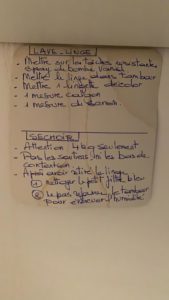 LAVE-LINGE
- Mettre sur les taches
- Mettre le linge dans tambour
- Mettre 1 lingette décolor
- 1 mesure calgon
- 1 mesure
SECHOIR
- Attention 4 kg seulement
- Pas les soutiens, ni les bas de
contention
- Après avoir retiré le linge
① nettoyer le petit filtre bleu
② le tambour
pour évacuer l'humidité